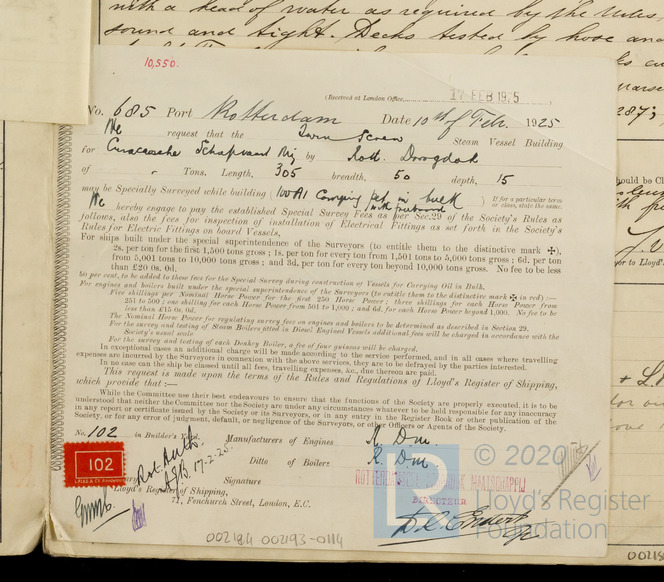 with a head of water as required by the Rules,
sound and tight. Decks tested by hose and
10,550.
(Received at London Office, 17 FEB 1925)
No. 685 Port Rotterdam Date 10th of Febr. 1925
We request that the Twin Screw Steam Vessel Building
for Curacaosche Scheepvaart Mij by Rott. Droogdok
of " Tons. Length, 305 breadth, 50 depth, 15
may be Specially Surveyed while building 100A1 Carrying pet. in bulk If for a particular term
with freeboard or class, state the same.
We hereby engage to pay the established Special Survey Fees as per Sec.29 of the Society's Rules as
follows, also the fees for inspection of installation of Electrical Fittings as set forth in the Society's
Rules for Electric Fittings on board Vessels,
For ships built under the special superintendence of the Surveyors (to entitle them to the distinctive mark ✠),
2s. per ton for the first 1,500 tons gross; 1s. per ton for every ton from 1,501 tons to 5,000 tons gross; 6d. per ton
from 5,001 tons to 10,000 tons gross; and 3d. per ton for every ton beyond 10,000 tons gross. No fee to be less
than £20 0s. 0d.
50 per cent. to be added to these fees for the Special Survey during construction of Vessels for Carrying Oil in Bulk.
For engines and boilers built under the special superintendence of the Surveyors (to entitle them to the distinctive mark ✠ in red) :—
Five shillings per Nominal Horse Power for the first 250 Horse Power; three shillings for each Horse Power from
251 to 500; one shilling for each Horse Power from 501 to 1,000; and 6d. for each Horse Power beyond 1,000. No fee to be
less than £15 0s. 0d.
The Nominal Horse Power for regulating survey fees on engines and boilers to be determined as described in Section 29.
For the survey and testing of Steam Boilers fitted in Diesel Engined Vessels additional fees will be charged in accordance with the
Society's usual scale
For the survey and testing of each Donkey Boiler, a fee of four guineas will be charged.
In exceptional cases an additional charge will be made according to the service performed, and in all cases where travelling
expenses are incurred by the Surveyors in connection with the above services, they are to be defrayed by the parties interested.
In no case can the ship be classed until all fees, travelling expenses, &c., due thereon are paid.
This request is made upon the terms of the Rules and Regulations of Lloyd's Register of Shipping,
which provide that :—
While the Committee use their best endeavours to ensure that the functions of the Society are properly executed, it is to be
understood that neither the Committee nor the Society are under any circumstances whatever to be held responsible for any inaccuracy
in any report or certificate issued by the Society or its Surveyors, or in any entry in the Register Book or other publication of the
Society, or for any error of judgment, default, or negligence of the Surveyors, or other Officers or Agents of the Society.
No. 102 in Builder's Yard. Manufacturers of Engines R. Dm.
Ditto of Boilers R. Dm
102
Signature
Lloyd's Register of Shipping,
71, Fenchurch Street, London, E.C.
17.2.25
DIRECTEUR
© 2020
Lloyd's Register
Foundation
002184 002193-0114